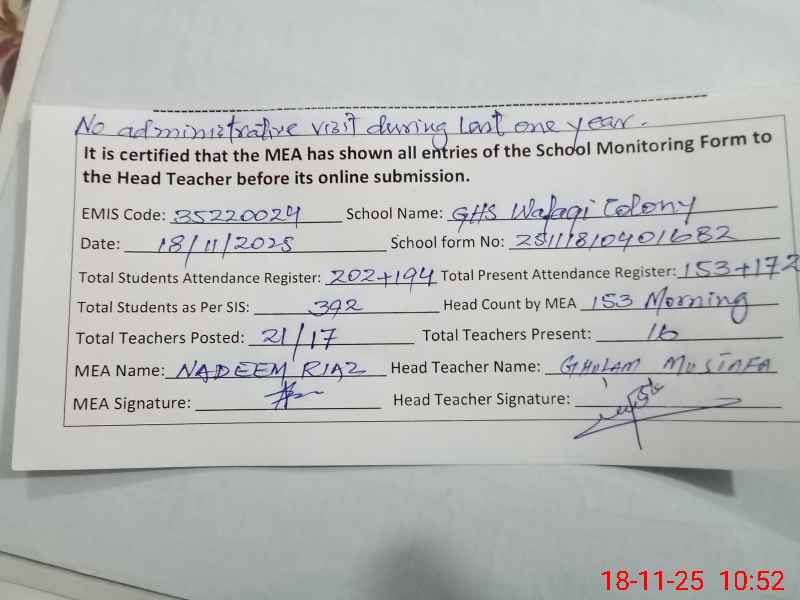 No administrative visit during last one year.
It is certified that the MEA has shown all entries of the School Monitoring Form to
the Head Teacher before its online submission.
EMIS Code: 35220024 School Name: GHS Wafaqi Colony
Date: 18/11/2025 School form No: 25111810401682
Total Students Attendance Register: 202+194 Total Present Attendance Register: 153+172
Total Students as Per SIS: 392 Head Count by MEA 153 Morning
Total Teachers Posted: 21/17 Total Teachers Present: 16
MEA Name: NADEEM RIAZ Head Teacher Name: GHULAM MUSTAFA
MEA Signature: Head Teacher Signature:
18-11-25 10:52